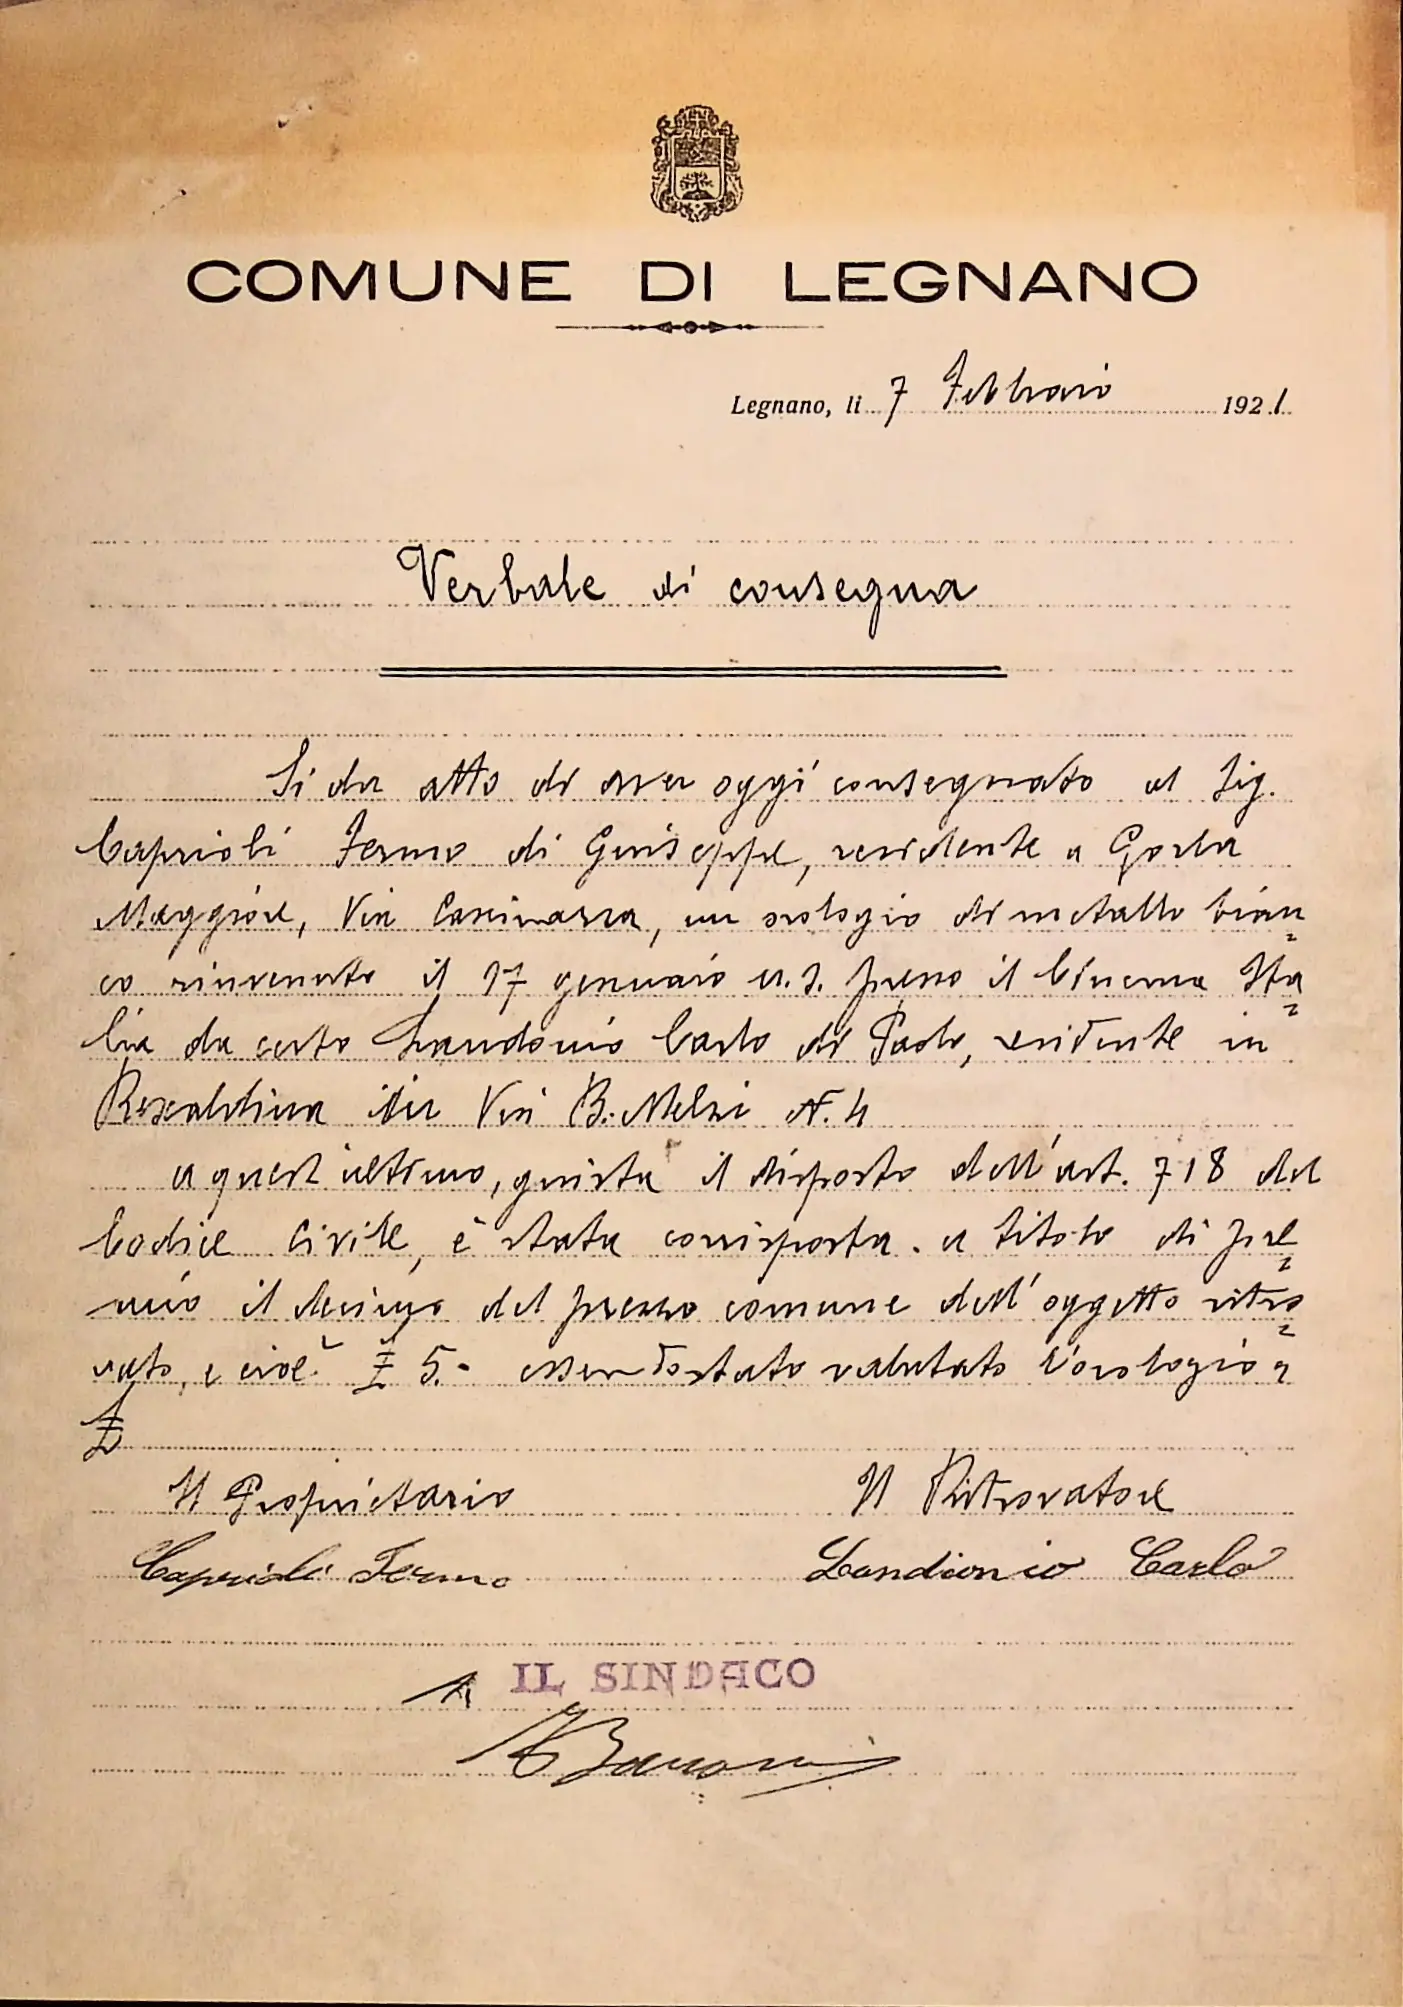 COMUNE DI LEGNANO
Legnano, li 7 Febbraio 1921
Verbale di consegna
Si da atto di aver oggi consegnato al Sig.
Caprioli Fermo di Giuseppe, residente a Gorla
Maggiore, Via Cascinazza, un orologio di metallo bian=
co rinvenuto il 17 gennaio u.s. presso il Cinema Ita=
lia da certo Landonio Carlo di Paolo, residente in
Rescaldina Via B. Melzi N. 4
a quest'ultimo, giusta il disposto dell'art. 718 del
Codice Civile, è stata corrisposta a titolo di pre=
mio il decimo del prezzo comune dell'oggetto ritro=
vato, e cioè £ 5.- essendo stato valutato l'orologio a
£
Il Proprietario Il Ritrovatore
Caprioli Fermo Landionio Carlo
IL SINDACO